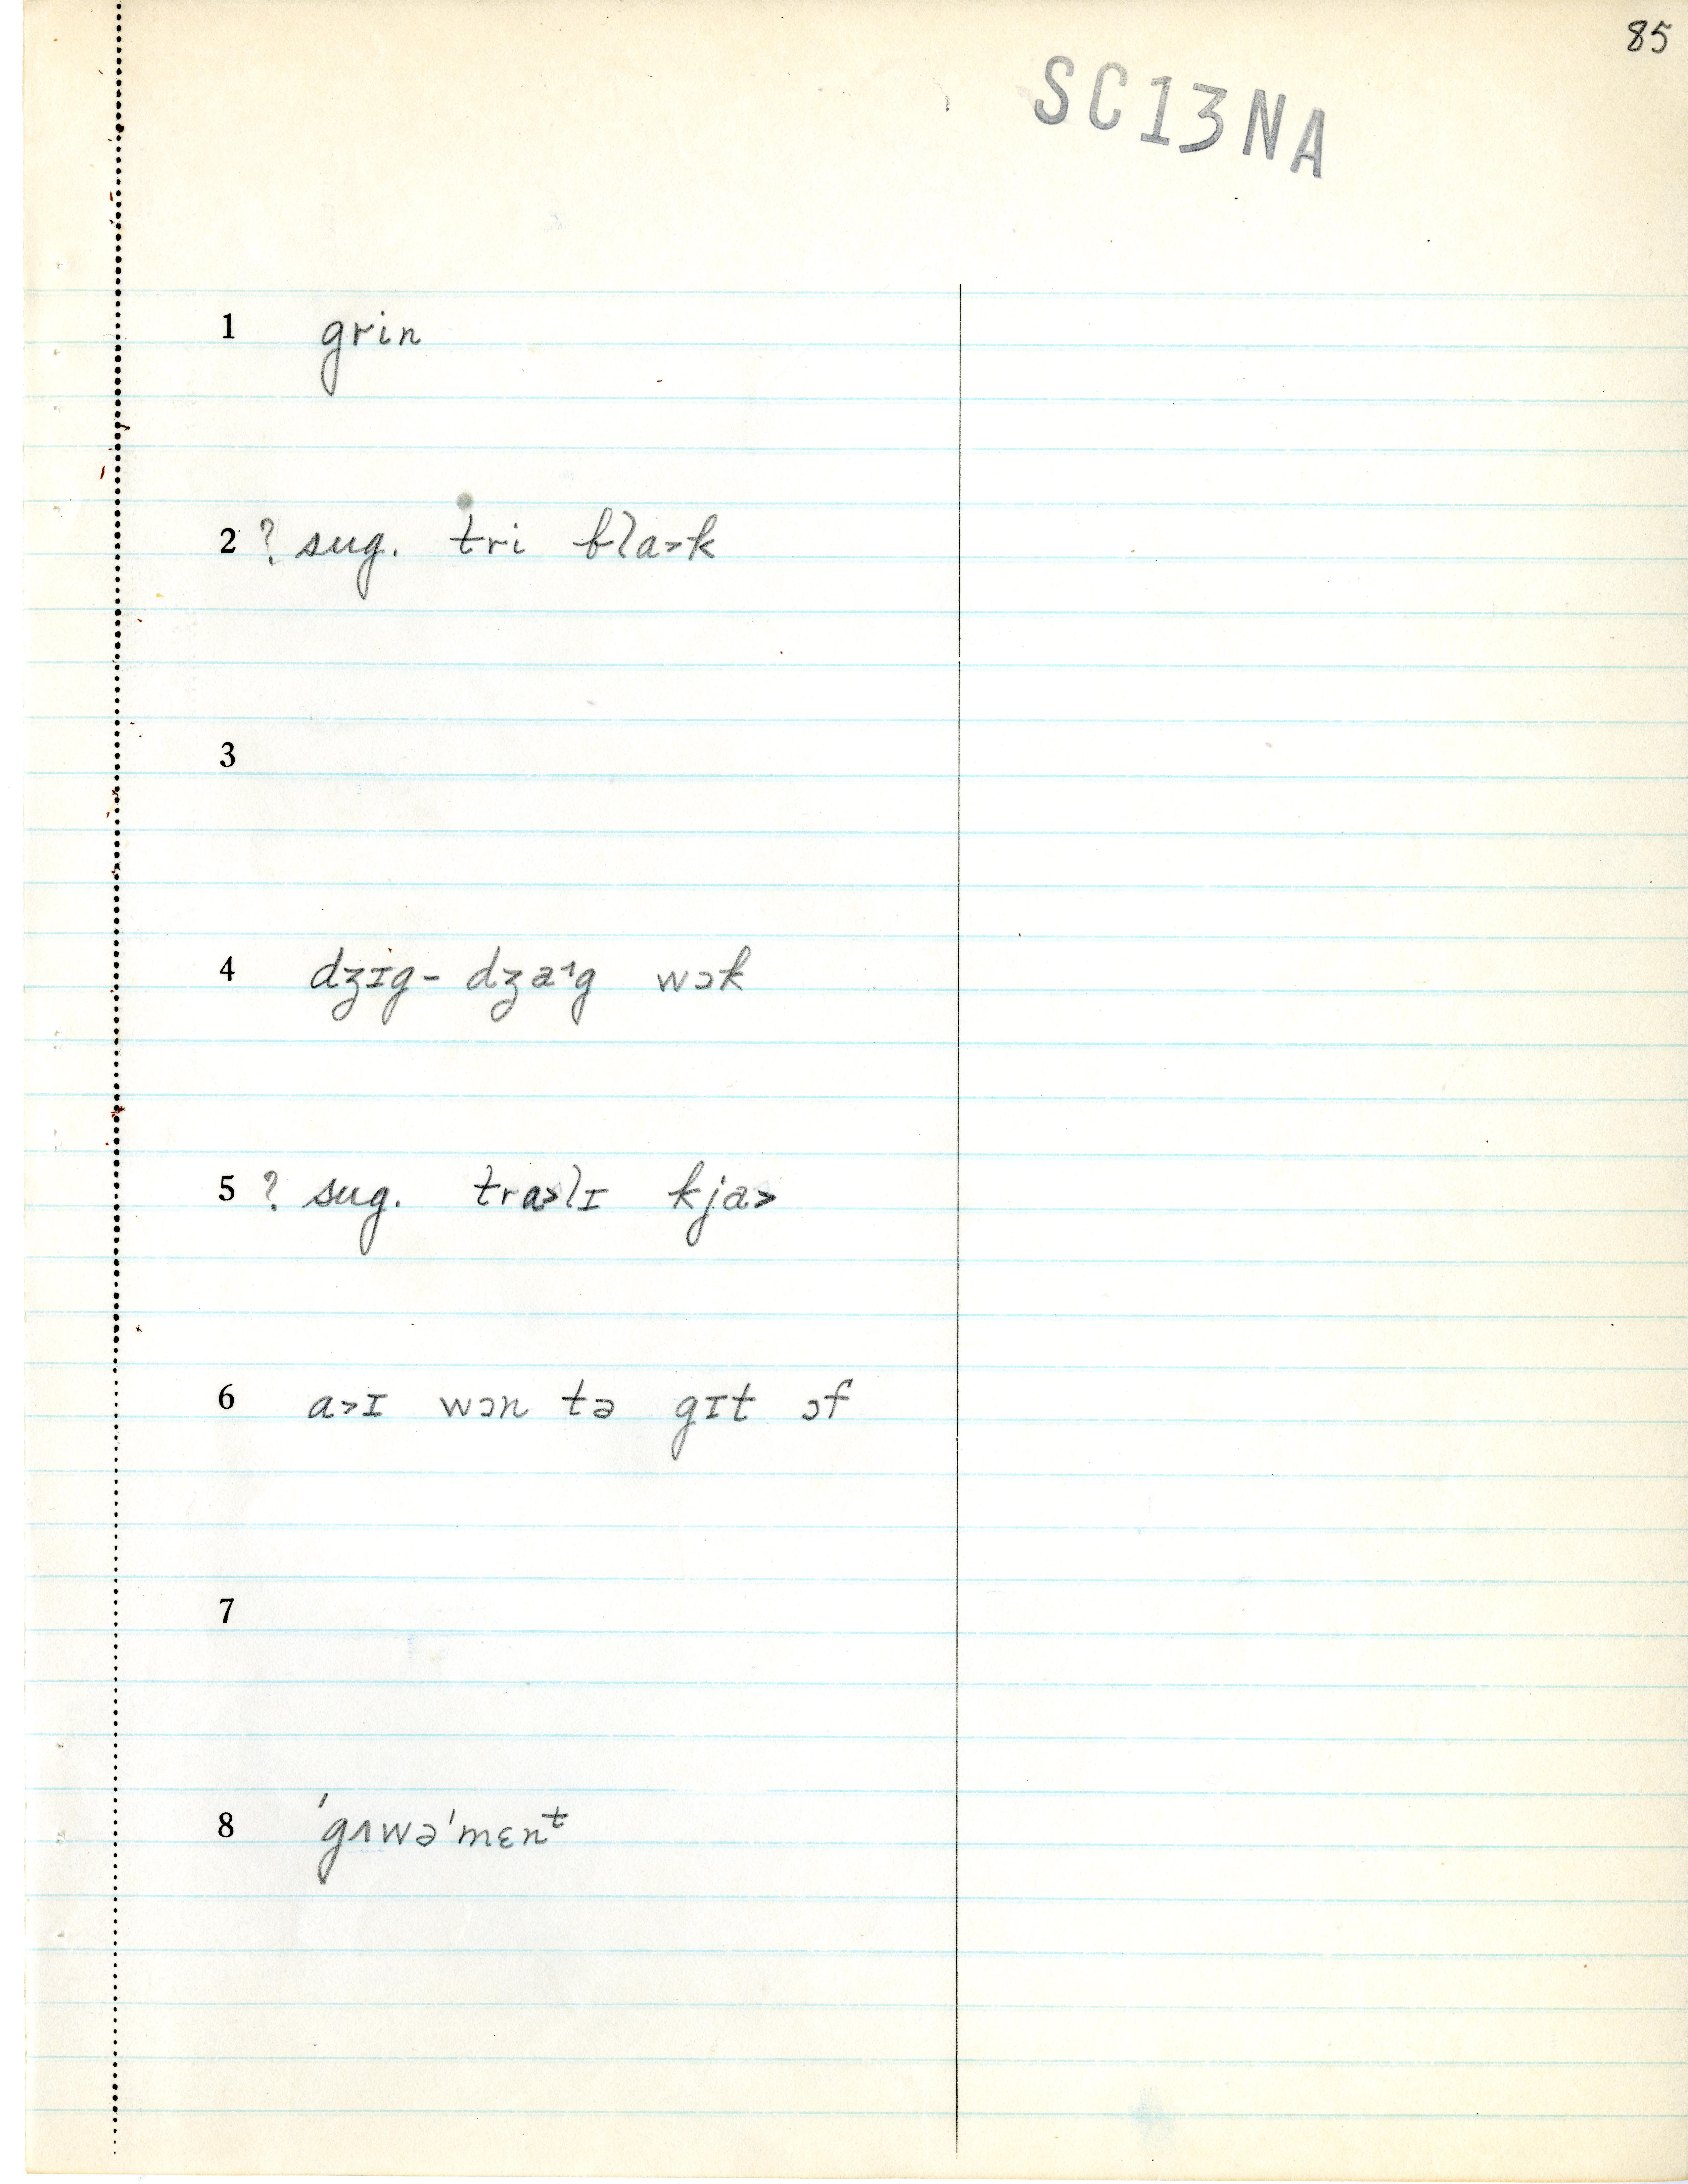 85
SC13NA
1 grin
2 ? sug. tri bla˃k
3
4 dʒɪg- dʒa˔g wɔk
5 ? sug. tra˃lɪ kja˃
6 a˃ɪ wɔn tə gɪt ɔf
7
8 ˈgʌwəˈmɛnᵗ